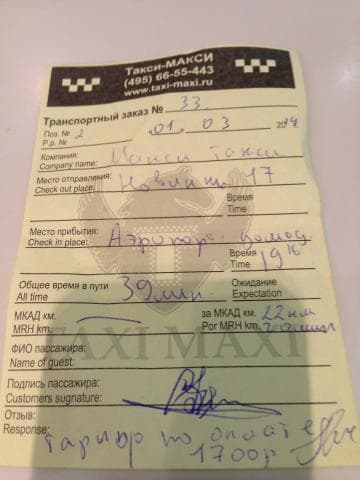 Такси-МАКСИ
(495) 66-55-443
www.taxi-maxi.ru
Транспортный заказ № 33
Поз. № 2 01 03
Р.р. №
Компания: Макси такси
Company name:
Место отправления:
Check out place: 17
Время
Time:
Место прибытия:
Check in place: Аэропорт
Время
Time: 19 16
Общее время в пути Ожидание
All time 39 мин. Expectation
МКАД км. за МКАД км. 22 км
MRH km. Por MRH km.
TAXI MAXI
ФИО пассажира:
Name of guest:
Подпись пассажира:
Customers sugnature:
Отзыв:
Response: тариф по оплате
1700р